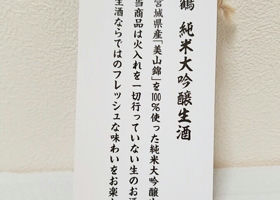 鶴 純米大吟醸生酒
宮城県産「美山錦」を100%使った純米大吟醸生
当商品は火入れを一切行っていない生のお酒
生酒ならではのフレッシュな味わいをお楽